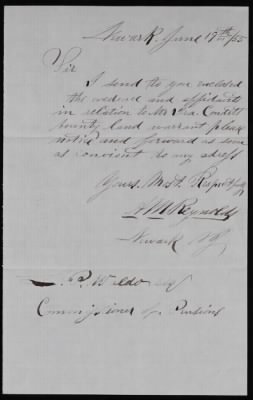 Newark June 19th/55
Sir
I send to you enclosed
the evedence and affidavits
in relation to Mr Ira Conditt
bounty land warrant pleas
and forward as soon
as convient to my adress
Yours Most Respectfully
A M Reynolds
Newark NJ
L. P. Waldo Esq
Commissioner of Pensions